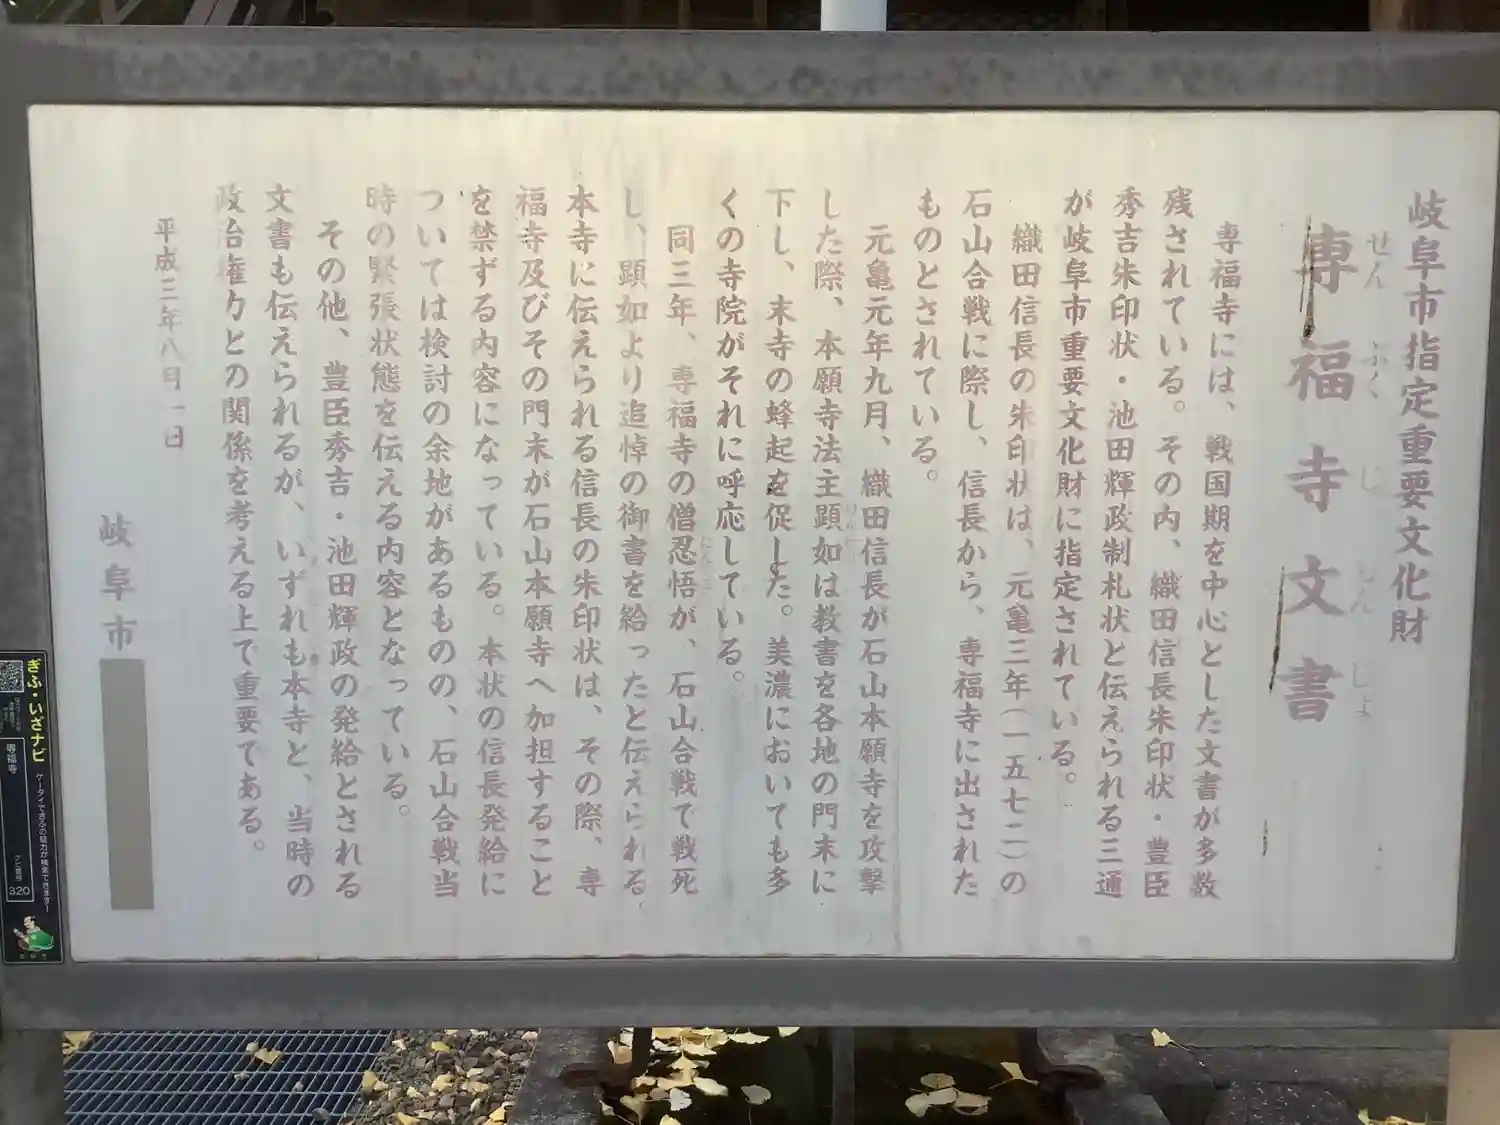 岐阜市指定重要文化財
専福寺文書
せんふくじもんじょ
専福寺には、戦国期を中心とした文書が多数
残されている。その内、織田信長朱印状・豊臣
秀吉朱印状・池田輝政制札状と伝えられる三通
が岐阜市重要文化財に指定されている。
織田信長の朱印状は、元亀三年(一五七二)の
石山合戦に際し、信長から、専福寺に出された
ものとされている。
元亀元年九月、織田信長が石山本願寺を攻撃
した際、本願寺法主顕如は教書を各地の門末に
下し、末寺の蜂起を促した。美濃においても多
くの寺院がそれに呼応している。
同三年、専福寺の僧忍悟が、石山合戦で戦死
し、顕如より追悼の御書を給ったと伝えられる。
本寺に伝えられる信長の朱印状は、その際、専
福寺及びその門末が石山本願寺へ加担すること
を禁ずる内容になっている。本状の信長発給に
ついては検討の余地があるものの、石山合戦当
時の緊張状態を伝える内容となっている。
その他、豊臣秀吉・池田輝政の発給とされる
文書も伝えられるが、いずれも本寺と、当時の
政治権力との関係を考える上で重要である。
平成三年八月一日
岐阜市
ぎふ・いざナビ
専福寺
320